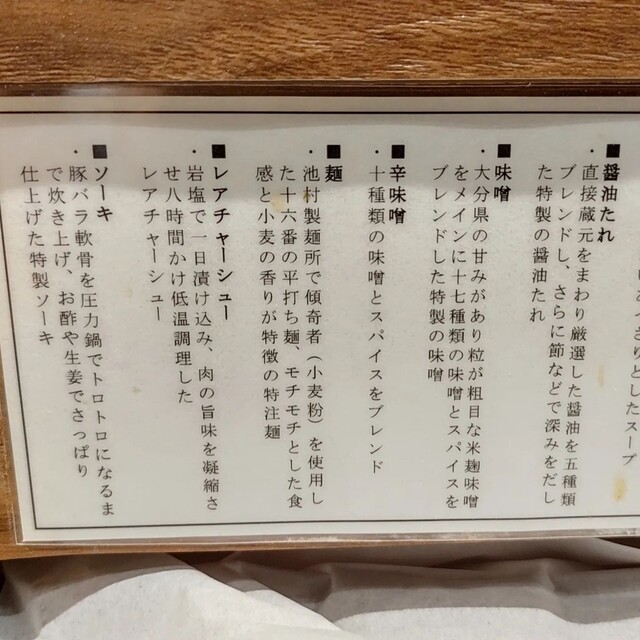 りとしたスープ
■醤油たれ
・直接蔵元をまわり厳選した醤油を五種類
ブレンドし、さらに節などで深みをだし
た特製の醤油たれ
■味噌
・大分県の甘みがあり粒が粗目な米麹味噌
をメインに十七種類の味噌とスパイスを
ブレンドした特製の味噌
■辛味噌
・十種類の味噌とスパイスをブレンド
■麺
・池村製麺所で傾奇者（小麦粉）を使用し
た十六番の平打ち麺、モチモチとした食
感と小麦の香りが特徴の特注麺
■レアチャーシュー
・岩塩で一日漬け込み、肉の旨味を凝縮さ
せ八時間かけ低温調理した
レアチャーシュー
■ソーキ
・豚バラ軟骨を圧力鍋でトロトロになるま
で炊き上げ、お酢や生姜でさっぱり
仕上げた特製ソーキ